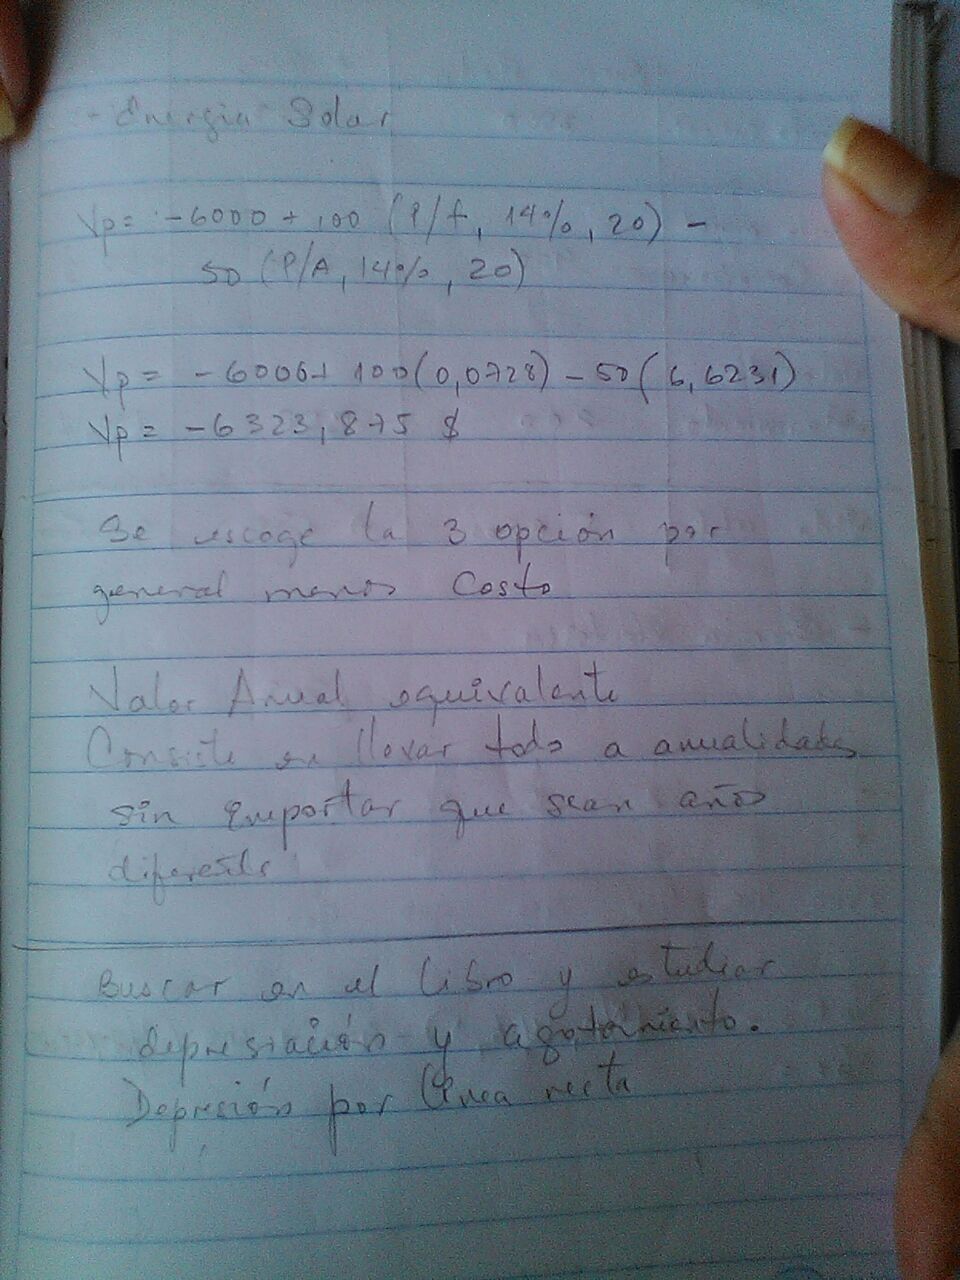 - Energia Solar
Vp= -6000 + 100 (P/f, 14%, 20) -
50 (P/A, 14%, 20)
Vp= -6000+ 100(0,0728) - 50(6,6231)
Vp= -6323,875 $
Se escoge la 3 opción por
general menos Costo
Valor Anual equivalente
Consiste en llevar todo a anualidades
sin Emportar que sean años
diferentes
Buscar en el libro y estudiar
depresiación y agotamiento.
Depresión por línea recta